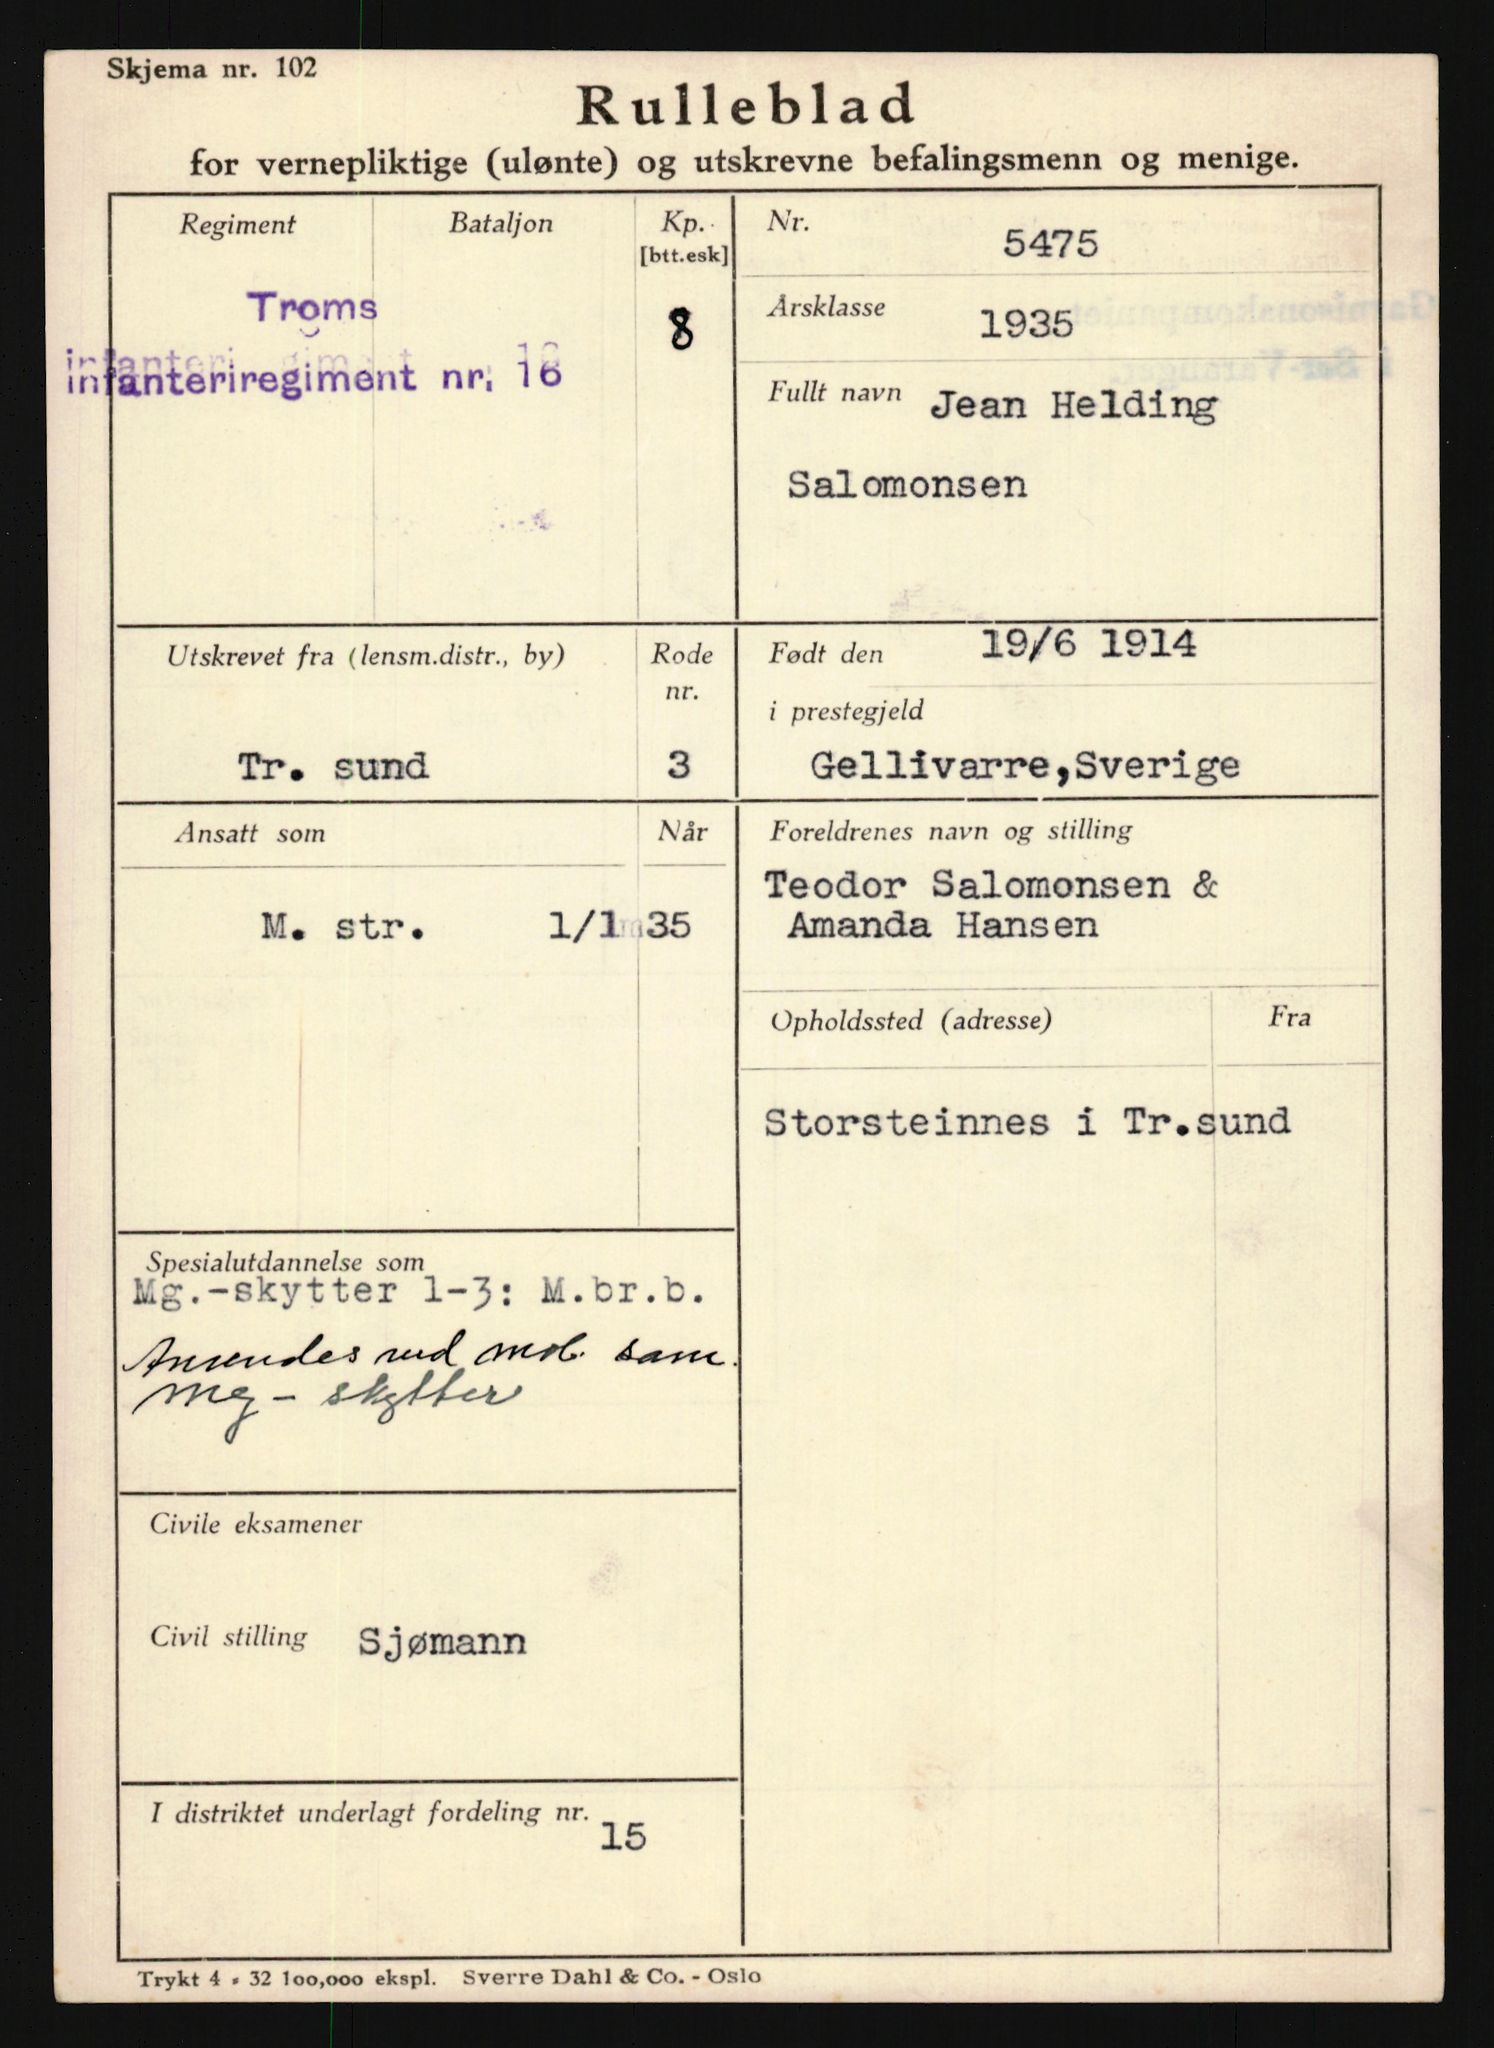 Skjema nr. 102
Rulleblad
for vernepliktige (ulønte) og utskrevne befalingsmenn og menige.
Regiment Bataljon Kp. [btt.esk]
Troms 8
infanteriregiment nr. 16
Nr. 5475
Årsklasse 1935
Fullt navn Jean Helding
Salomonsen
Utskrevet fra (lensm.distr., by) Rode nr.
Tr. sund 3
Født den 19/6 1914
i prestegjeld
Gellivarre,Sverige
Ansatt som Når
M. str. 1/1 35
Foreldrenes navn og stilling
Teodor Salomonsen &
Amanda Hansen
Opholdssted (adresse) Fra
Storsteinnes i Tr.sund
Spesialutdannelse som
Mg.-skytter 1-3: M.br.b.
Anvendes ved mob. som
mg - skytter
Civile eksamener
Civil stilling Sjømann
I distriktet underlagt fordeling nr. 15
Trykt 4 - 32 100,000 ekspl. Sverre Dahl & Co. - Oslo